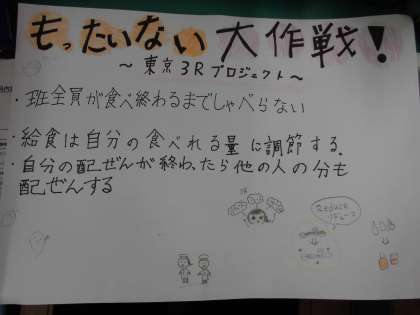 もったいない大作戦!
～東京3Rプロジェクト～
・班全員が食べ終わるまでしゃべらない
・給食は自分の食べれる量に調節する。
・自分の配ぜんが終わったら他の人の分も
配ぜんする
Reduce
リデュース